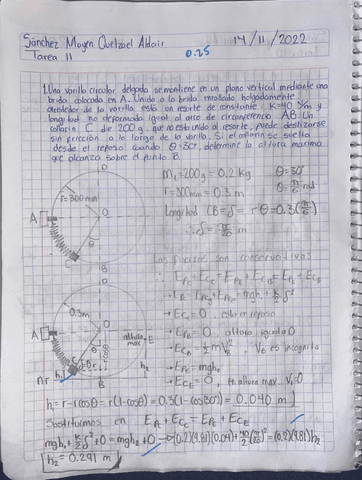 Sánchez Moyen Quetzael Aldair 14/11/2022
Tarea 11 0.25
1. Una varilla circular delgada se mantiene en un plano vertical mediante una
brida colocada en A. Unido a la brida y enrollado holgadamente
alrededor de la varilla está un resorte de constante K=40 N/m y
longitud no deformada igual al arco de circunferencia AB. Un
collarín C de 200 g, que no está unido al resorte, puede deslizarse
sin fricción a lo largo de la varilla. Si el collarín se suelta
desde el reposo cuando θ=30°, determine la altura máxima
que alcanza sobre el punto B.
D
r=300mm
O
A
θ
C
B
Mc=200g=0.2 kg θ=30°
r=300mm=0.3 m θ=π/6 rad
Longitud CB=δ=rθ=0.3(π/6)
∴δ=π/20 m
Las fuerzas son conservativas
D
0.3m
O
A
θ
altura max
E
h₂
B
→Ecc=0, esta en reposo
→EPB=0, altura igual a 0
→EcB=½mVB², VB es incognita
→EPE=mgh₂
→EcE=0, en altura max. VE=0
h₁=r-rcosθ=r(1-cosθ)=0.3(1-cos30°)=0.040 m
Sustituimos en EPc+Ecc=EPE+EcE
mgh₁+k/2 δ²+0=mgh₂+0→(0.2)(9.81)(0.04)+40/2(π/20)²=(0.2)(9.81)h₂
h₂=0.291 m